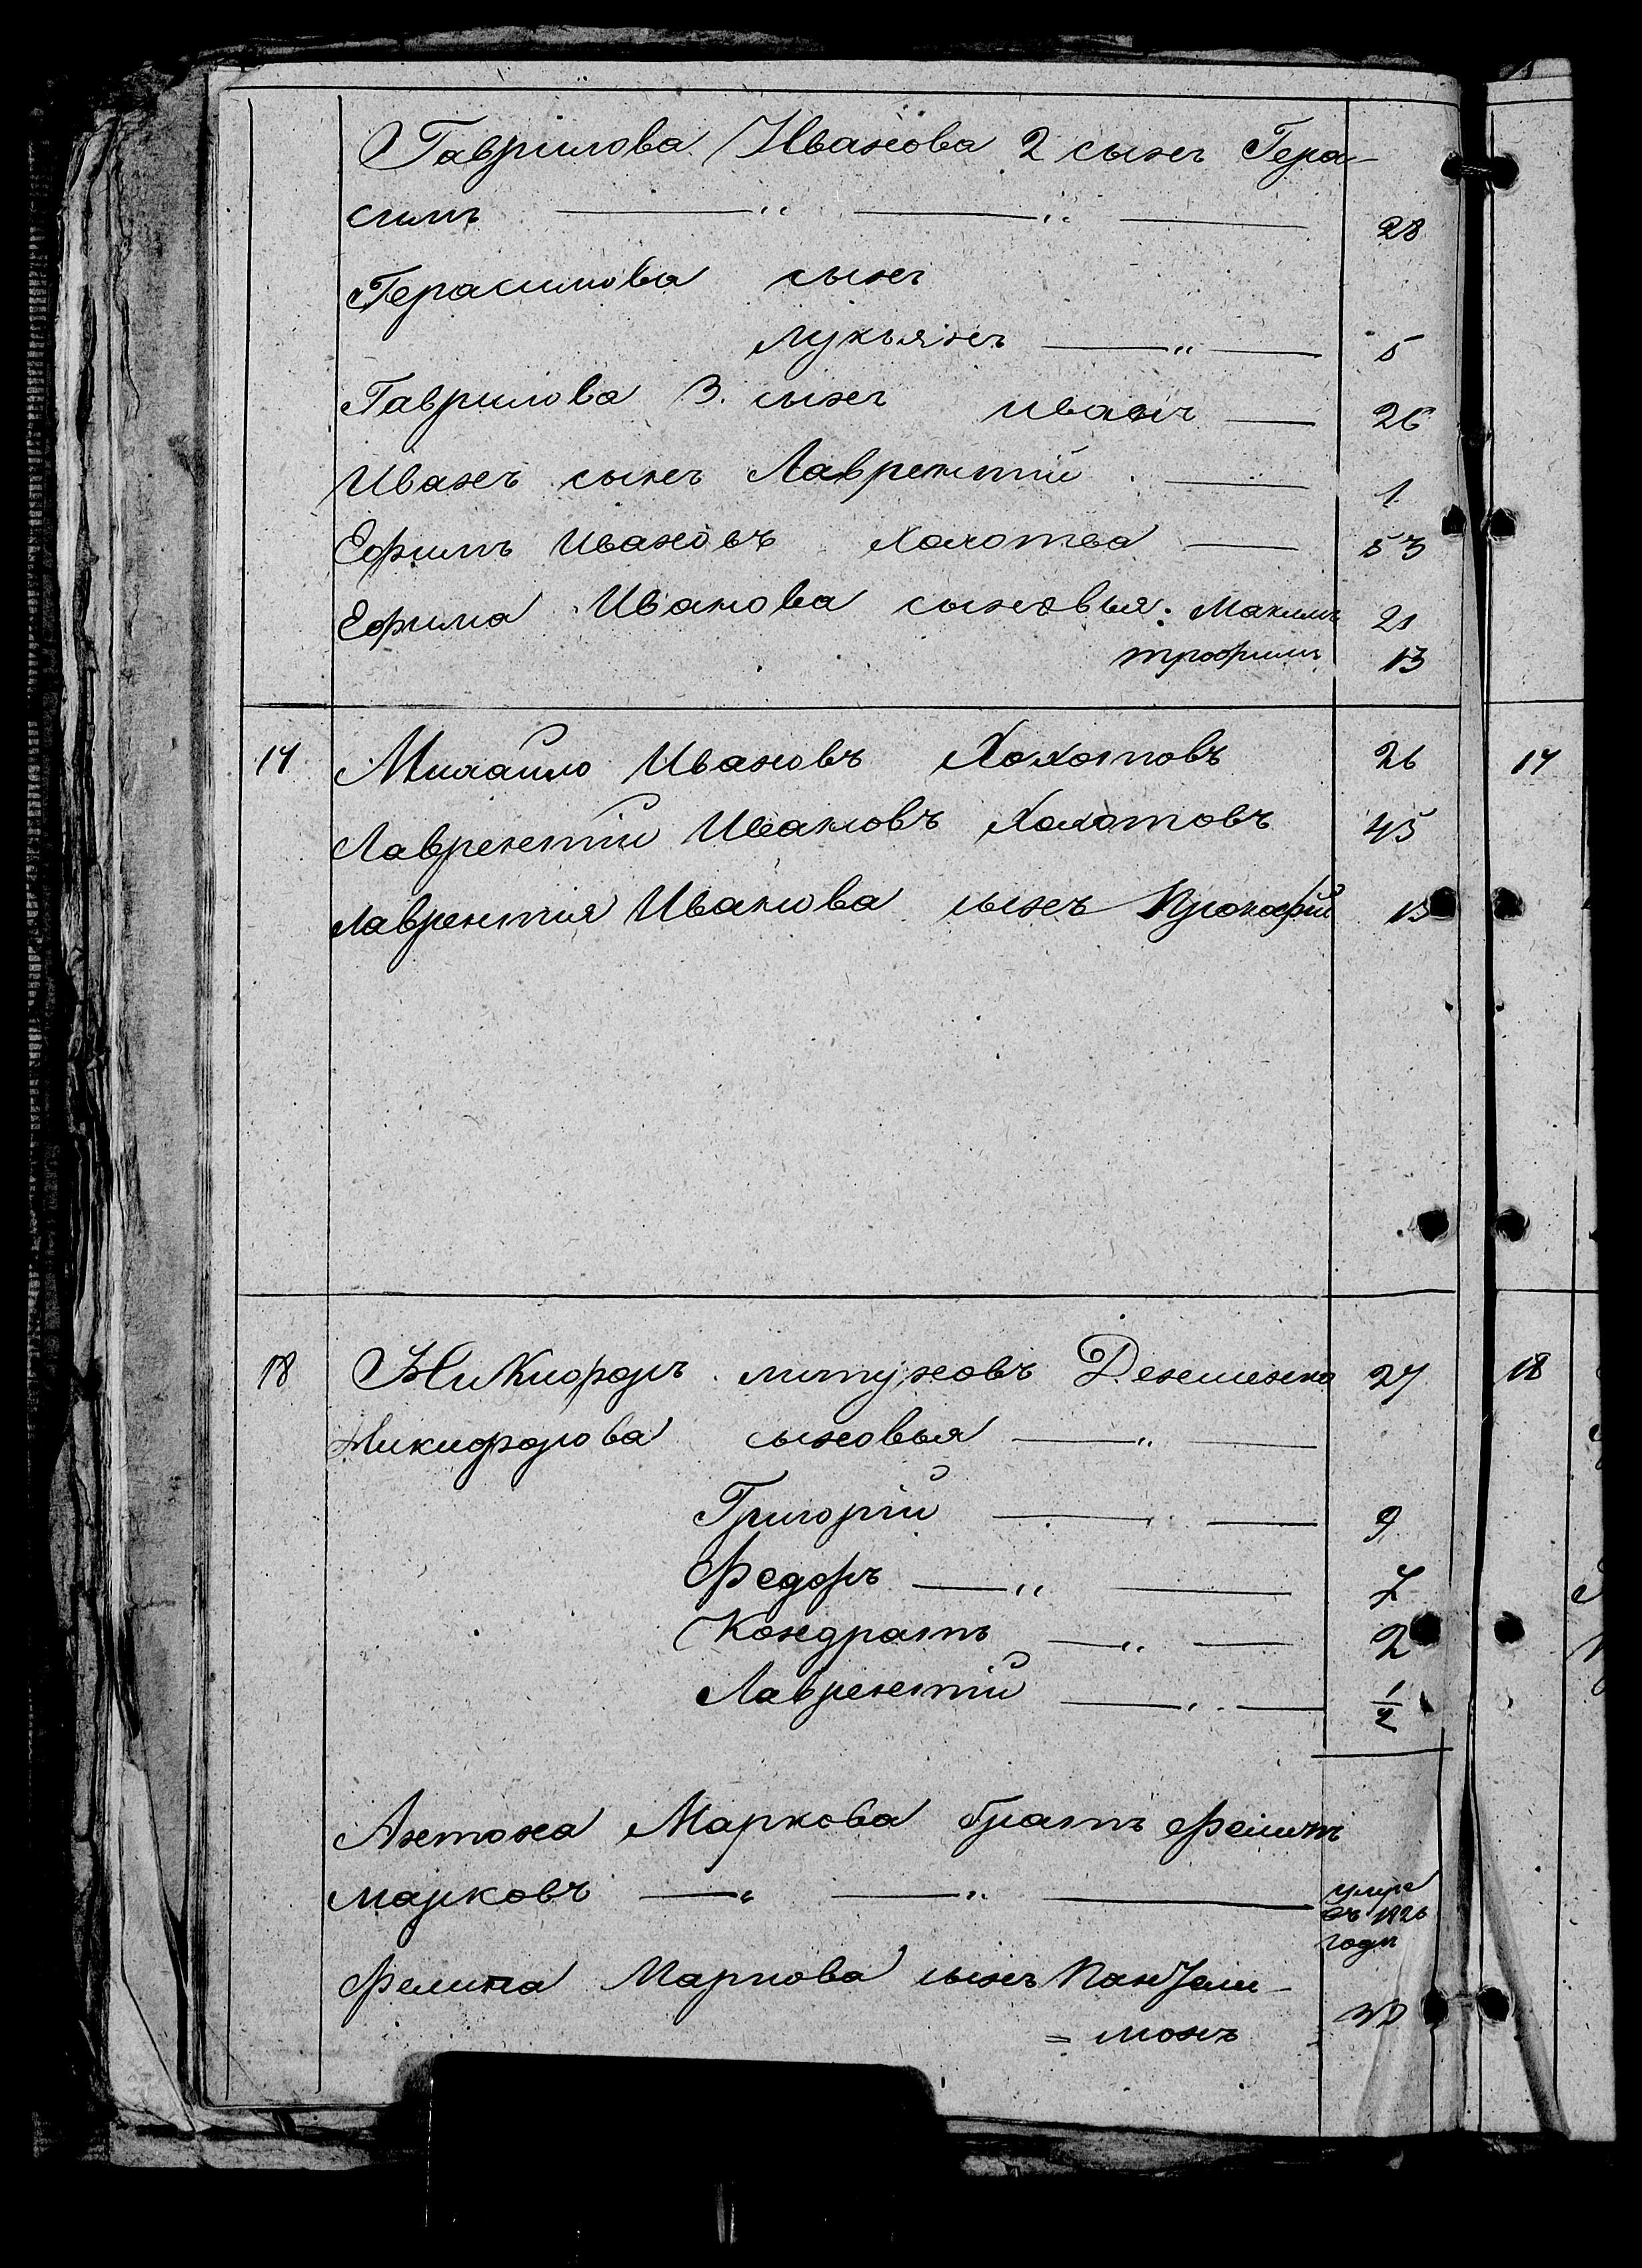 Гаврилова Иванова 2 сынъ Гера-
симъ — " — " — 28
Герасимова сынъ
Лукьянъ — " — 5
Гаврилова 3. сынъ Иванъ — 26
Иванъ сынъ Лаврентій — 1
Ефимъ Ивановъ — 53
Ефима Ивановa сыновья: Макимъ 21
трофимъ 13
17 Михайло Ивановъ Хохотовъ 26 17
Лаврентій Ивановъ Хохотовъ 45
Лаврентія Иванова сынъ Прокофій
18 Никифоръ Денешенко 27 18
Никифорова сыновья — " —
Григорій — " — 9
Федоръ — " — 7
Кондратъ — " — 2
Лаврентій — " — 1/2
Антона Маркова братъ Филипъ
Марковъ — " — " — умре
въ 1826
годы
Филипа Маркова сынъ Пантели-
= монъ